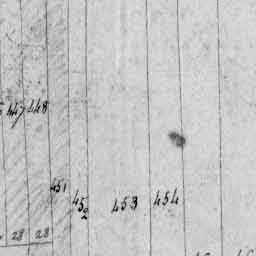 447 448
451
452 453 454
28 28